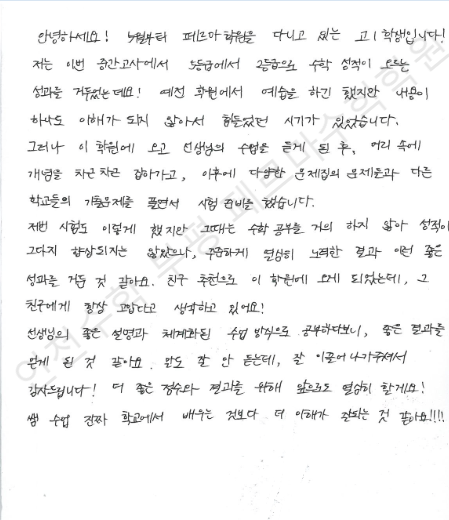 안녕하세요! 겨울부터 페르마 학원을 다니고 있는 고1 학생입니다!
저는 이번 중간고사에서 5등급에서 2등급으로 수학 성적이 오르는
성과를 거두었는데요! 예전 학원에서 예습을 하긴 했지만 내용이
하나도 이해가 되지 않아서 힘들었던 시기가 있었습니다.
그러나 이 학원에 오고 선생님의 수업을 듣게 된 후, 머리 속에
개념을 차근차근 잡아가고, 이후에 다양한 문제집의 문제들과 다른
학교들의 기출문제를 풀면서 시험 준비를 했습니다.
저번 시험도 이렇게 했지만 그때는 수학 공부를 거의 하지 않아 성적이
그다지 향상되지는 않았으나, 꾸준하게 열심히 노력한 결과 이런 좋은
성과를 거둔 것 같아요. 친구 추천으로 이 학원에 오게 되었는데, 그
친구에게 항상 고맙다고 생각하고 있어요!
선생님의 좋은 설명과 체계화된 수업 방식으로 공부하다보니, 좋은 결과를
얻게 된 것 같아요. 말도 잘 안 듣는데, 잘 이끌어나가주셔서
감사드립니다! 더 좋은 점수와 결과를 위해 앞으로도 열심히 할게요!
쌤 수업 진짜 학교에서 배우는 것보다 더 이해가 잘되는 것 같아요!!!!
인천수학 부평 페르마수학학원